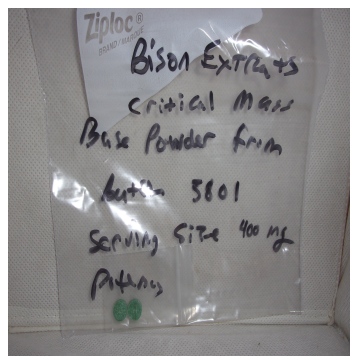 Ziploc®
BRAND / MARQUE
Bison Extracts
Critical Mass
Base Powder from
batch 5801
Serving Size 400 mg